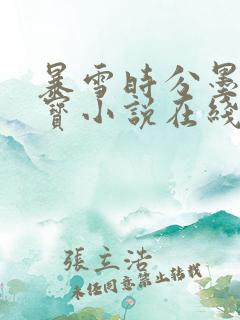 暴雪時分墨
寶小說在綫
張立浩
未經同意禁止轉載